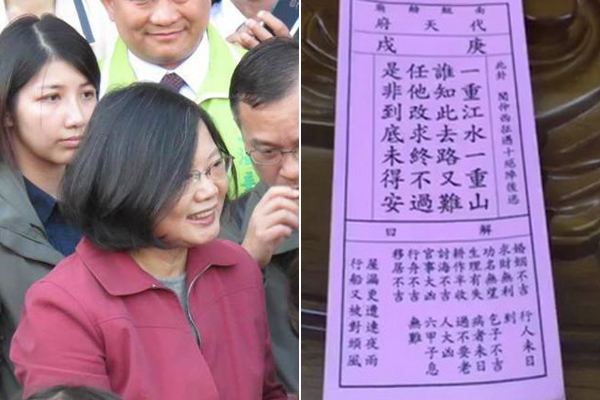 南鯤鯓廟
代天府
庚戌
此卦 聞仲西征遇十絕陣後逃
一重江水一重山
誰知此去路又難
任他改求終不過
是非到底未得安
解曰
婚姻不吉 行人未日
求財無利 到
功名無望 包子不吉
生理有失 病者未日
耕作半收 過不要老
討海不吉 人大凶
官事大凶 六甲子息
行舟不吉 無難
移居不吉
屋漏更遭連夜雨
行船又被對頭風